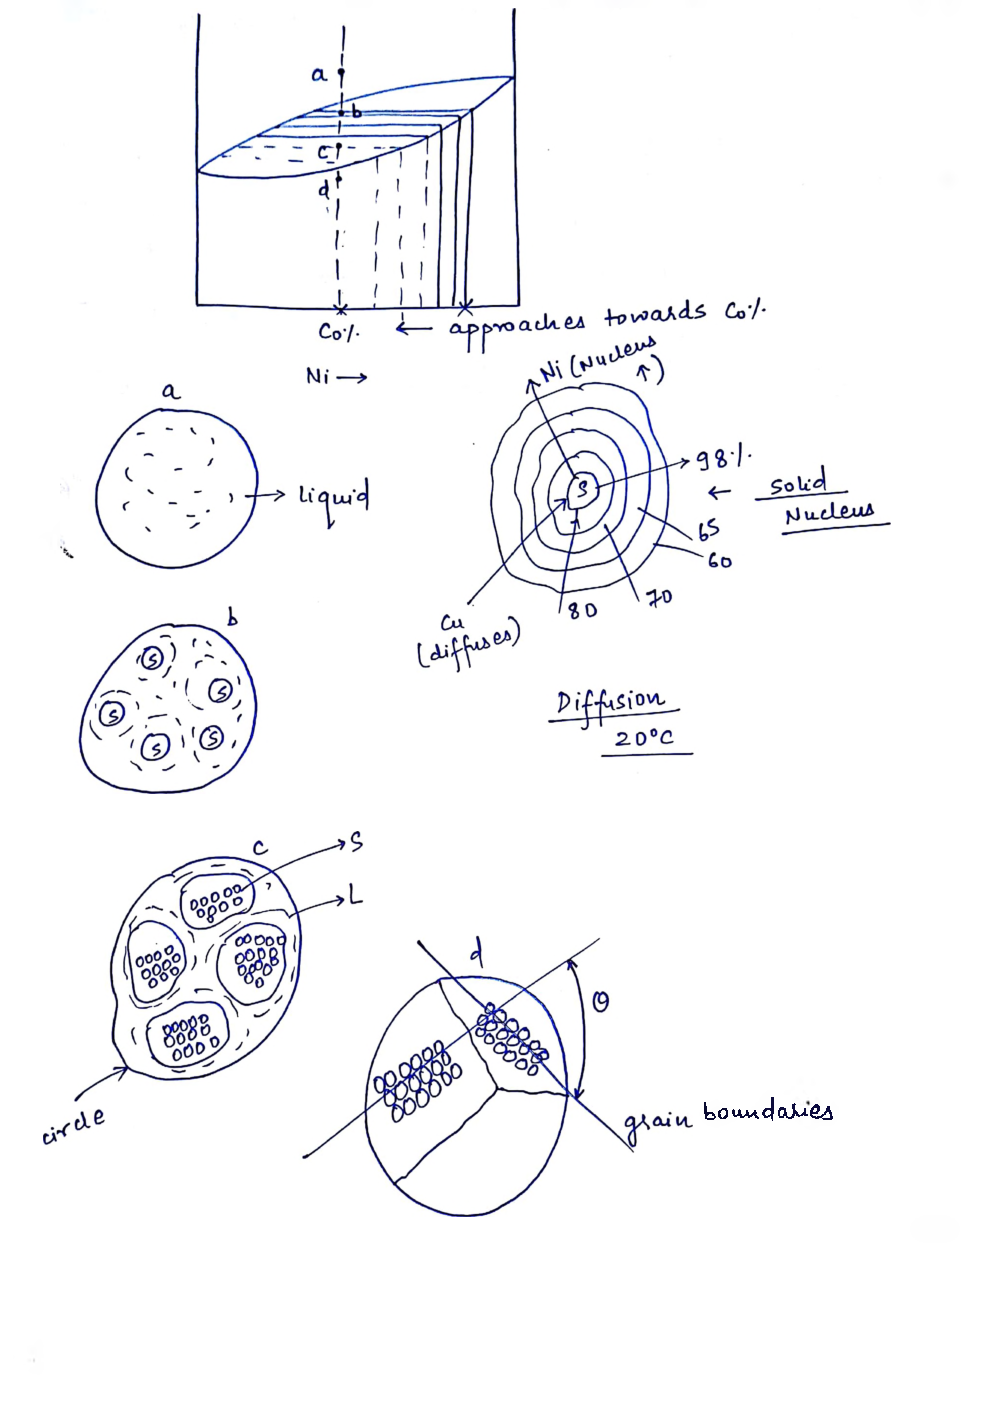 a
b
c
d
Co%
← approaches towards Co%
Ni →
Ni (Nucleus
↑)
a
98%
S
← Solid
Nucleus
liquid
65
60
70
80
Cu
(diffuses)
b
S
S
S
S
S
Diffusion
20°C
c
S
L
circle
d
θ
grain boundaries